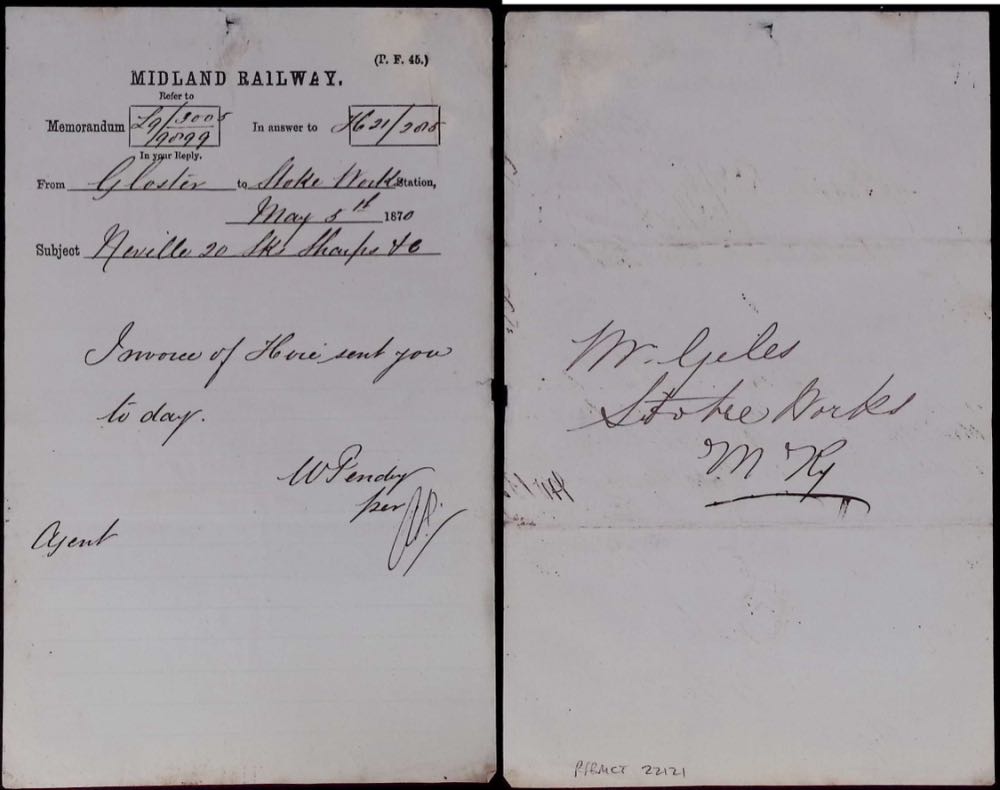 (P. F. 45.)
MIDLAND RAILWAY.
Refer to
Memorandum Lg/3005 In answer to H21/205
/9899
In your Reply.
From Gloster to Stoke Works Station,
May 5th 1870
Subject Neville 20 Sks Sharps &c
Invoice of Here sent you
to day.
W Pendry
per
Agent
Mr. Giles
Stoke Works
M Ry
22121